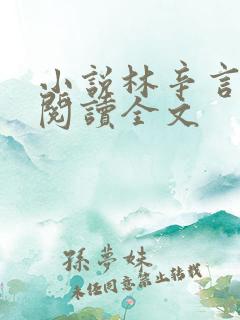 小說林辛言
閱讀全文
孫夢妹
未經同意禁止轉載